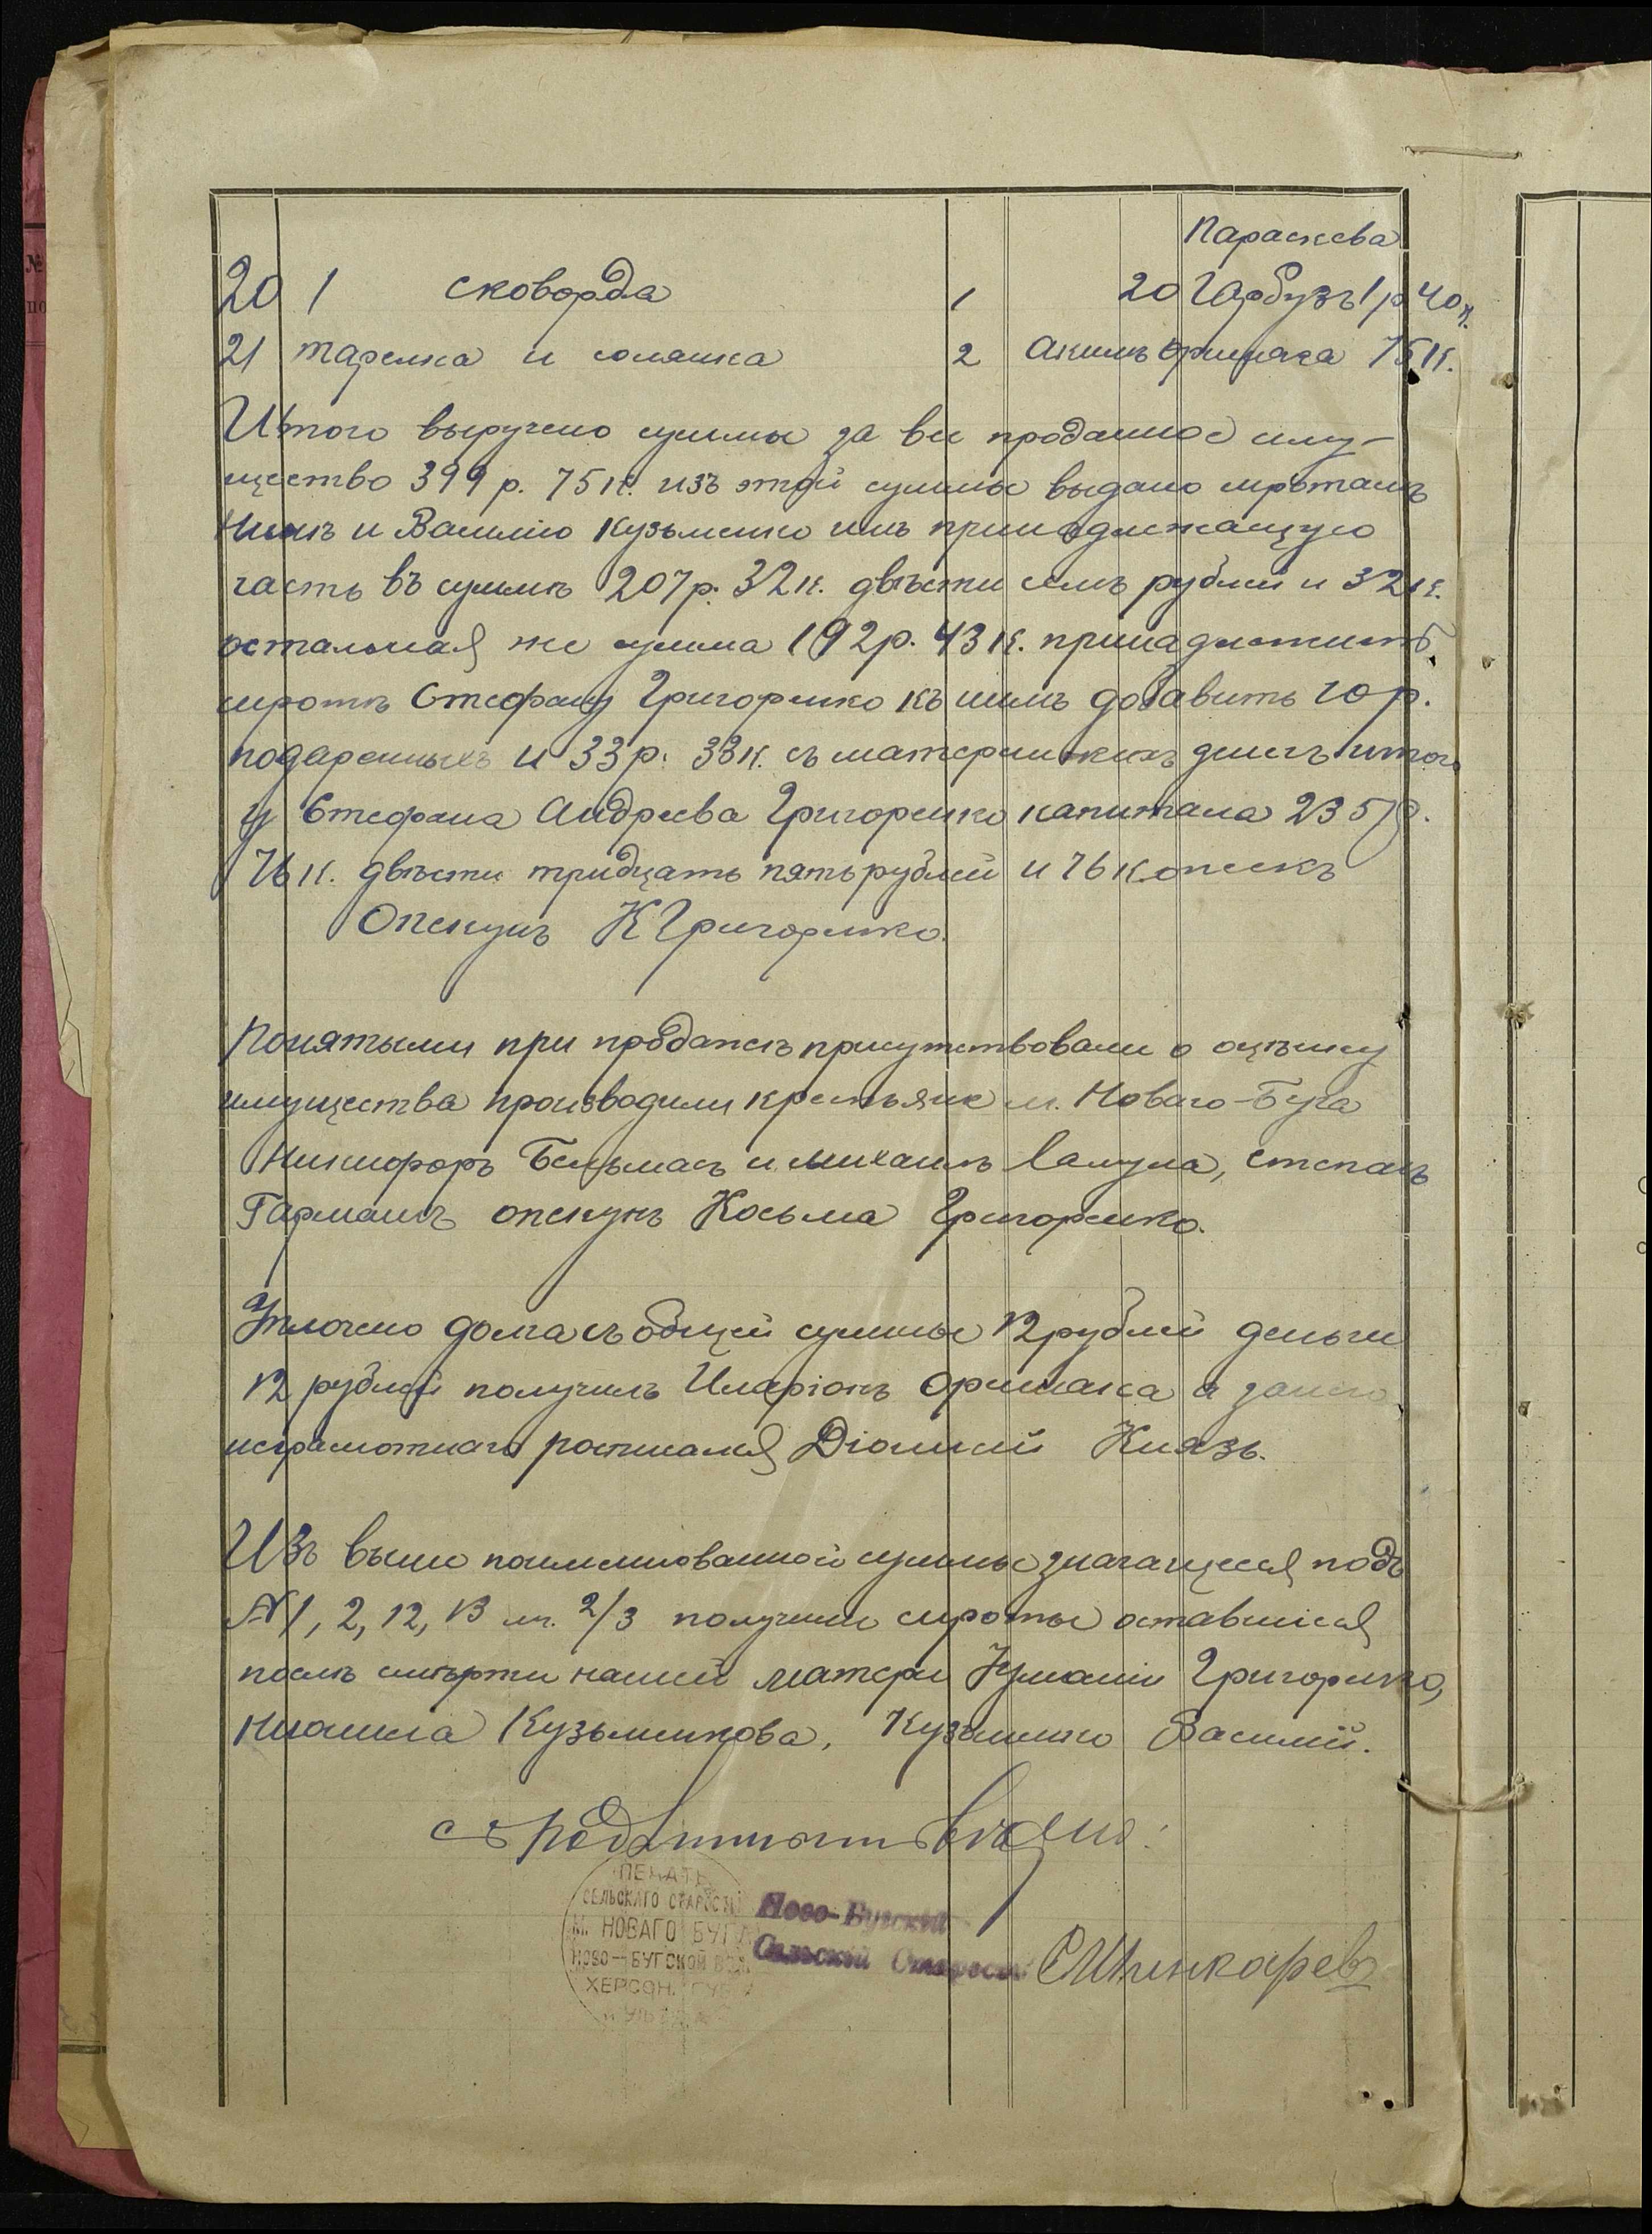 Параскева
20 1 сковорда 1 20 Гарбузъ 1 р 40 к.
21 тарелка и соляшка 2 Акимъ Оришака 75 к.
Итого выручено суммы за все проданное иму-
щество 399 р. 75 к. изъ этой суммы выдано сиротамъ
и Василию Кузьменко имъ принадлежащую
часть въ сумме 207 р. 32 к. двѣсти семь рублей и 32 к.
остальная же сумма 192 р. 43 к. принадлежитъ
сиротѣ Стефану Григоренко къ нимъ добавить 10 р.
подаренныхъ и 33 р. 33 к. съ материнскихъ денегъ итого
у Стефана Андреева Григоренко капитала 235 р.
76 к. двѣсти тридцать пять рублей и 76 копеекъ
Опекунъ К Григоренко.
Понятыми при продажѣ присутствовали о оцѣнку
имущества производили крестьяне м. Новаго-Буга
Никифоръ Бельмасъ и Михаилъ Лалула, Степанъ
Гарманъ опекунъ Косьма Григоренко.
Уплочено долга съ общей суммы 12 рублей деньги
12 рублей получилъ Иларіонъ Оришака а за него
неграмотнаго росписался Діонисій Князь.
Изъ выше поименнованной суммы значащееся подъ
№ 1, 2, 12, 13 2/3 получили сироты оставшіеся
послѣ смѣрти нашей матери Григоренко,
Кузьменкова, Кузьменко Василій.
съ подлиннымъ вѣрно:
ПЕЧАТЬ
СЕЛЬСКАГО СТАРОСТЫ
М. НОВАГО БУГА
НОВО-БУГСКОЙ ВОЛ.
ХЕРСОН. ГУБ.
Ново-Бугскій
Сельскій Староста Шинкаревъ